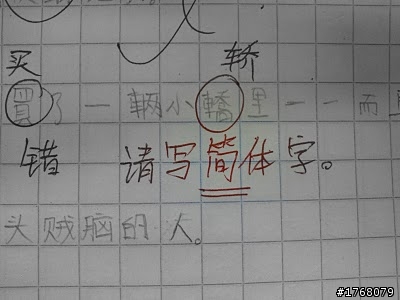 买 轿
買了一辆小轎里一一而
错 请写简体字。
头贼脑的人。
#1768079